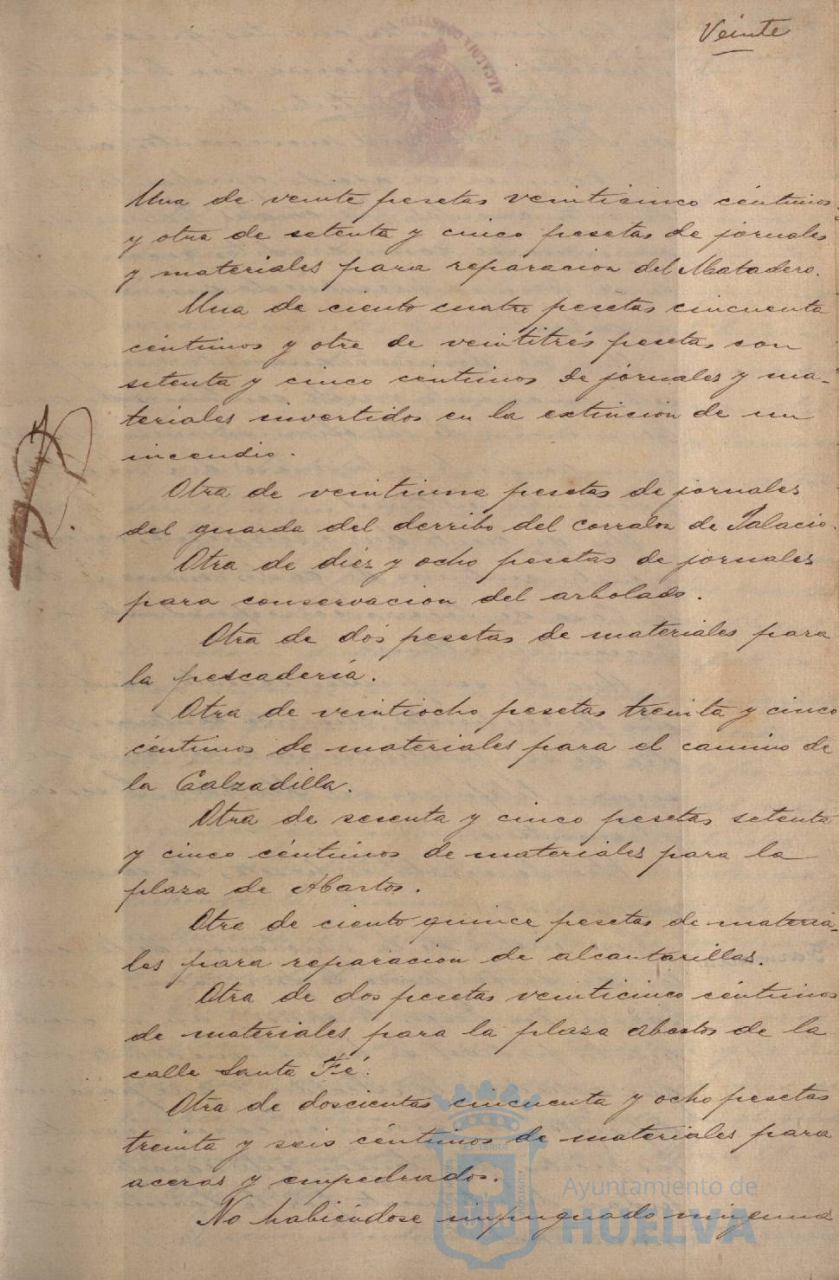 Veinte
Una de veinte pesetas veinticinco céntimos
y otra de setenta y cinco pesetas de jornales
y materiales para reparacion del Matadero.
Una de ciento cuatro pesetas cincuenta
céntimos y otra de veintitrés pesetas con
setenta y cinco céntimos de jornales y ma-
teriales invertidos en la extincion de un
incendio.
Otra de veintiuna pesetas de jornales
del guarda del derribo del corralon de Palacio.
Otra de diés y ocho pesetas de jornales
para conservacion del arbolado.
Otra de dos pesetas de materiales para
la pescadería.
Otra de veintiocho pesetas treinta y cinco
céntimos de materiales para el camino de
la Calzadilla.
Otra de sesenta y cinco pesetas setenta
y cinco céntimos de materiales para la
plaza de Abastos.
Otra de ciento quince pesetas de materia-
les para reparacion de alcantarillas.
Otra de dos pesetas veinticinco céntimos
de materiales para la plaza abastos de la
calle Santa Fé.
Otra de doscientas cincuenta y ocho pesetas
treinta y seis céntimos de materiales para
aceras y empedrados.
No habiéndose impugnado ninguna
Ayuntamiento de
HUELVA